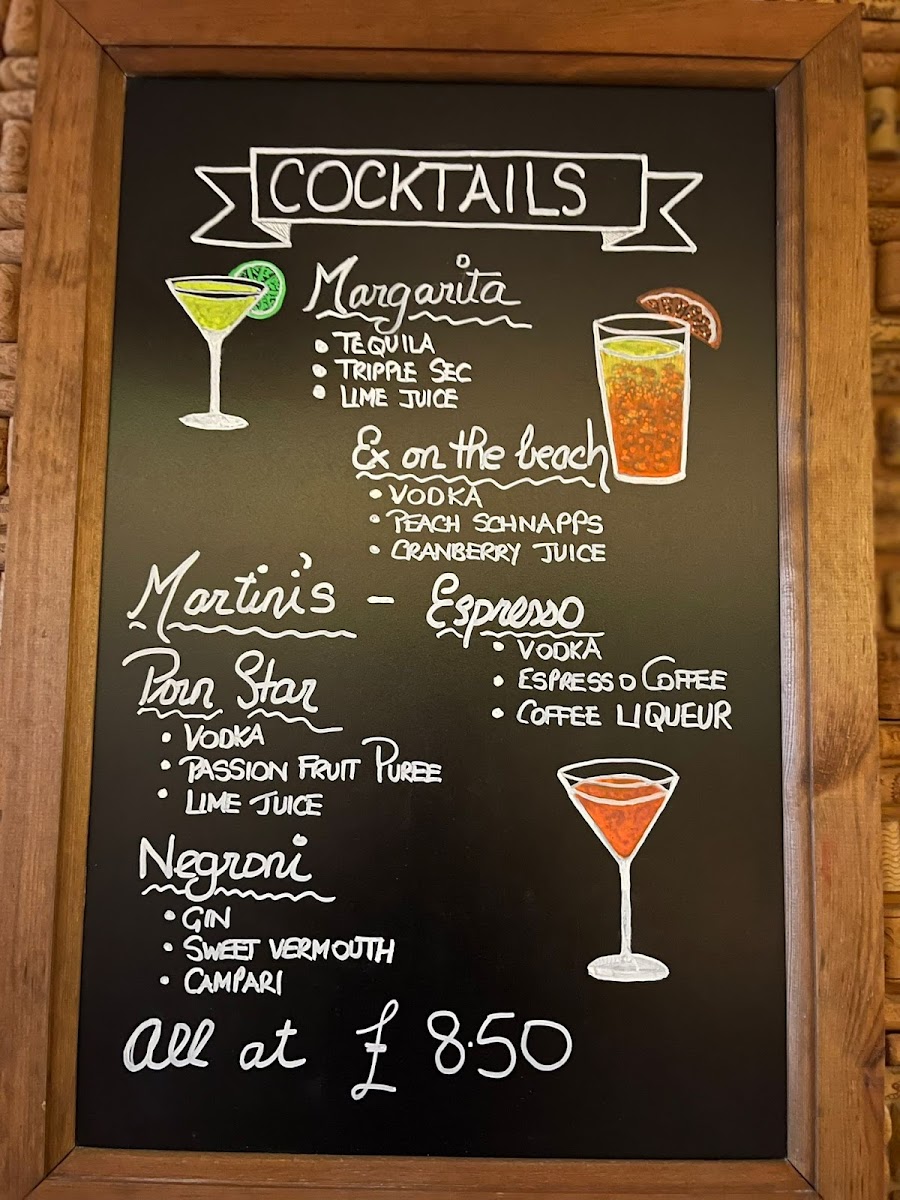 COCKTAILS
Margarita
• TEQUILA
• TRIPPLE SEC
• LIME JUICE
Ex on the beach
• VODKA
• PEACH SCHNAPPS
• CRANBERRY JUICE
Martini's - Espresso
• VODKA
• ESPRESSO COFFEE
• COFFEE LIQUEUR
Porn Star
• VODKA
• PASSION FRUIT PUREE
• LIME JUICE
Negroni
• GIN
• SWEET VERMOUTH
• CAMPARI
All at £ 8.50